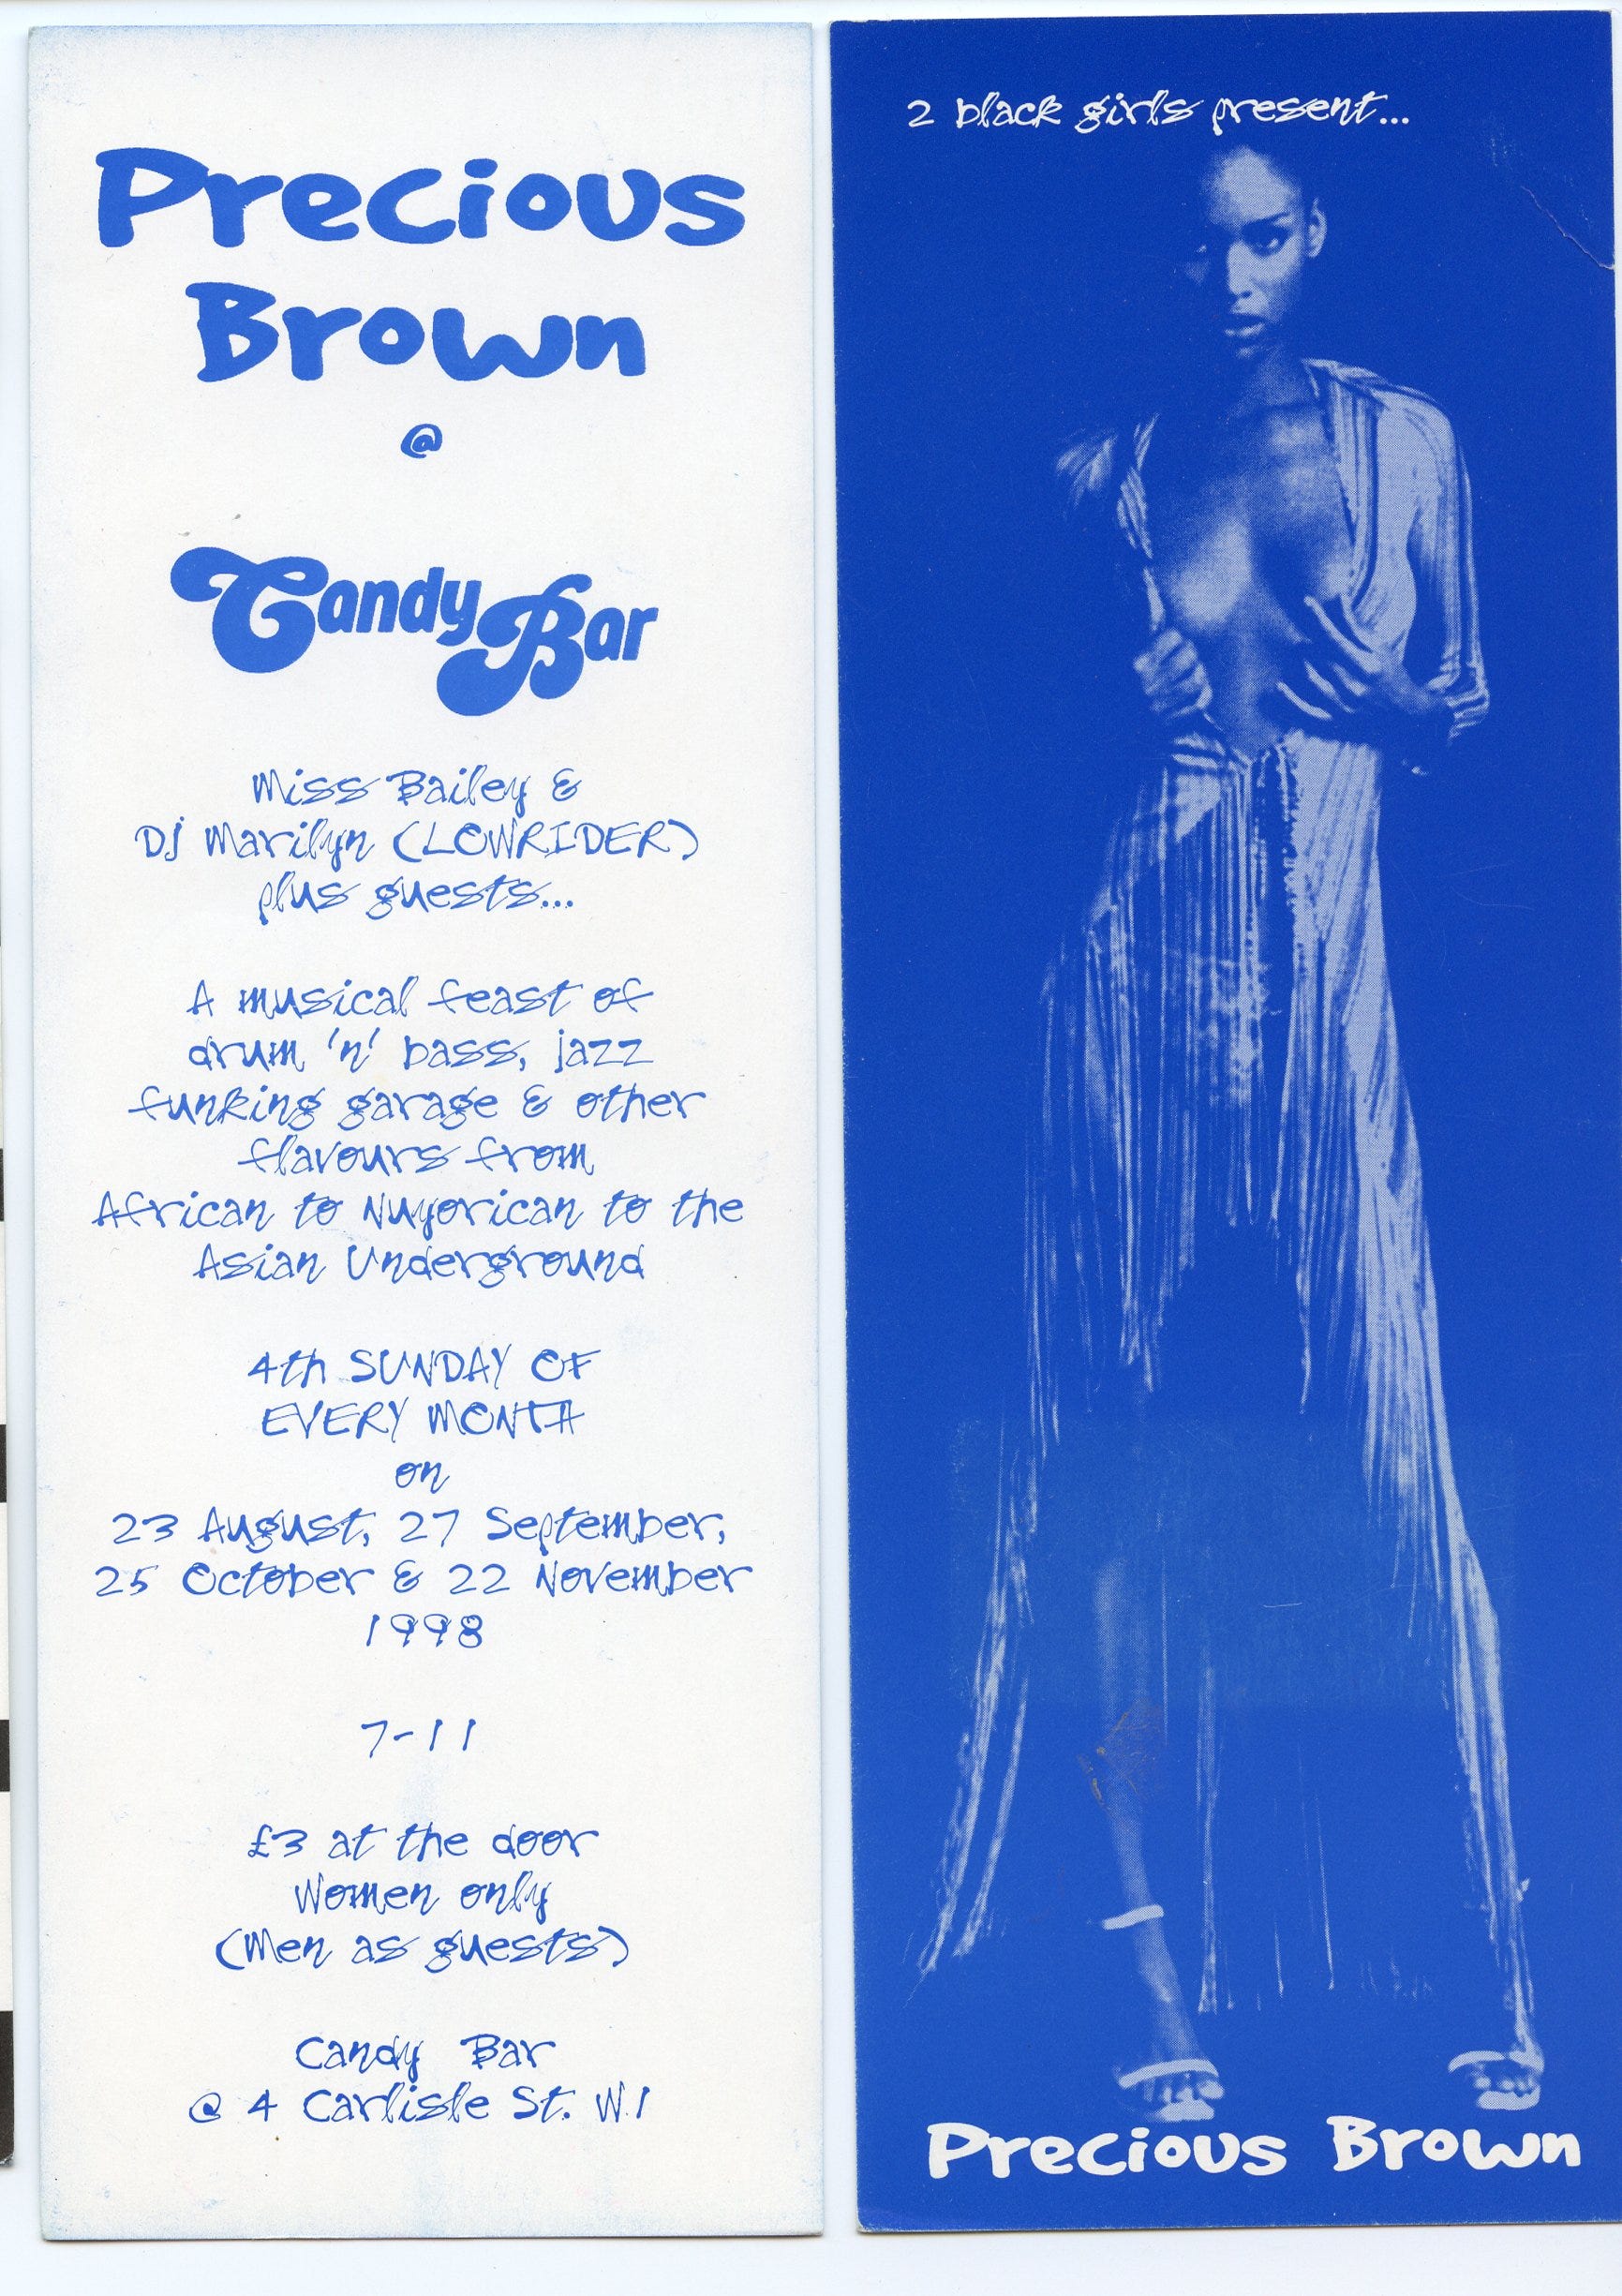 Precious
Brown
@
Candy Bar
Miss Bailey &
DJ Marilyn (LOWRIDER)
plus guests...
A musical feast of
drum 'n' bass, jazz
funking garage & other
flavours from
African to Nuyorican to the
Asian Underground
4th SUNDAY OF
EVERY MONTH
on
23 August, 27 September,
25 October & 22 November
1998
7-11
£3 at the door
Women only
(Men as guests)
Candy Bar
@ 4 Carlisle St. W.1
2 black girls present...
Precious Brown